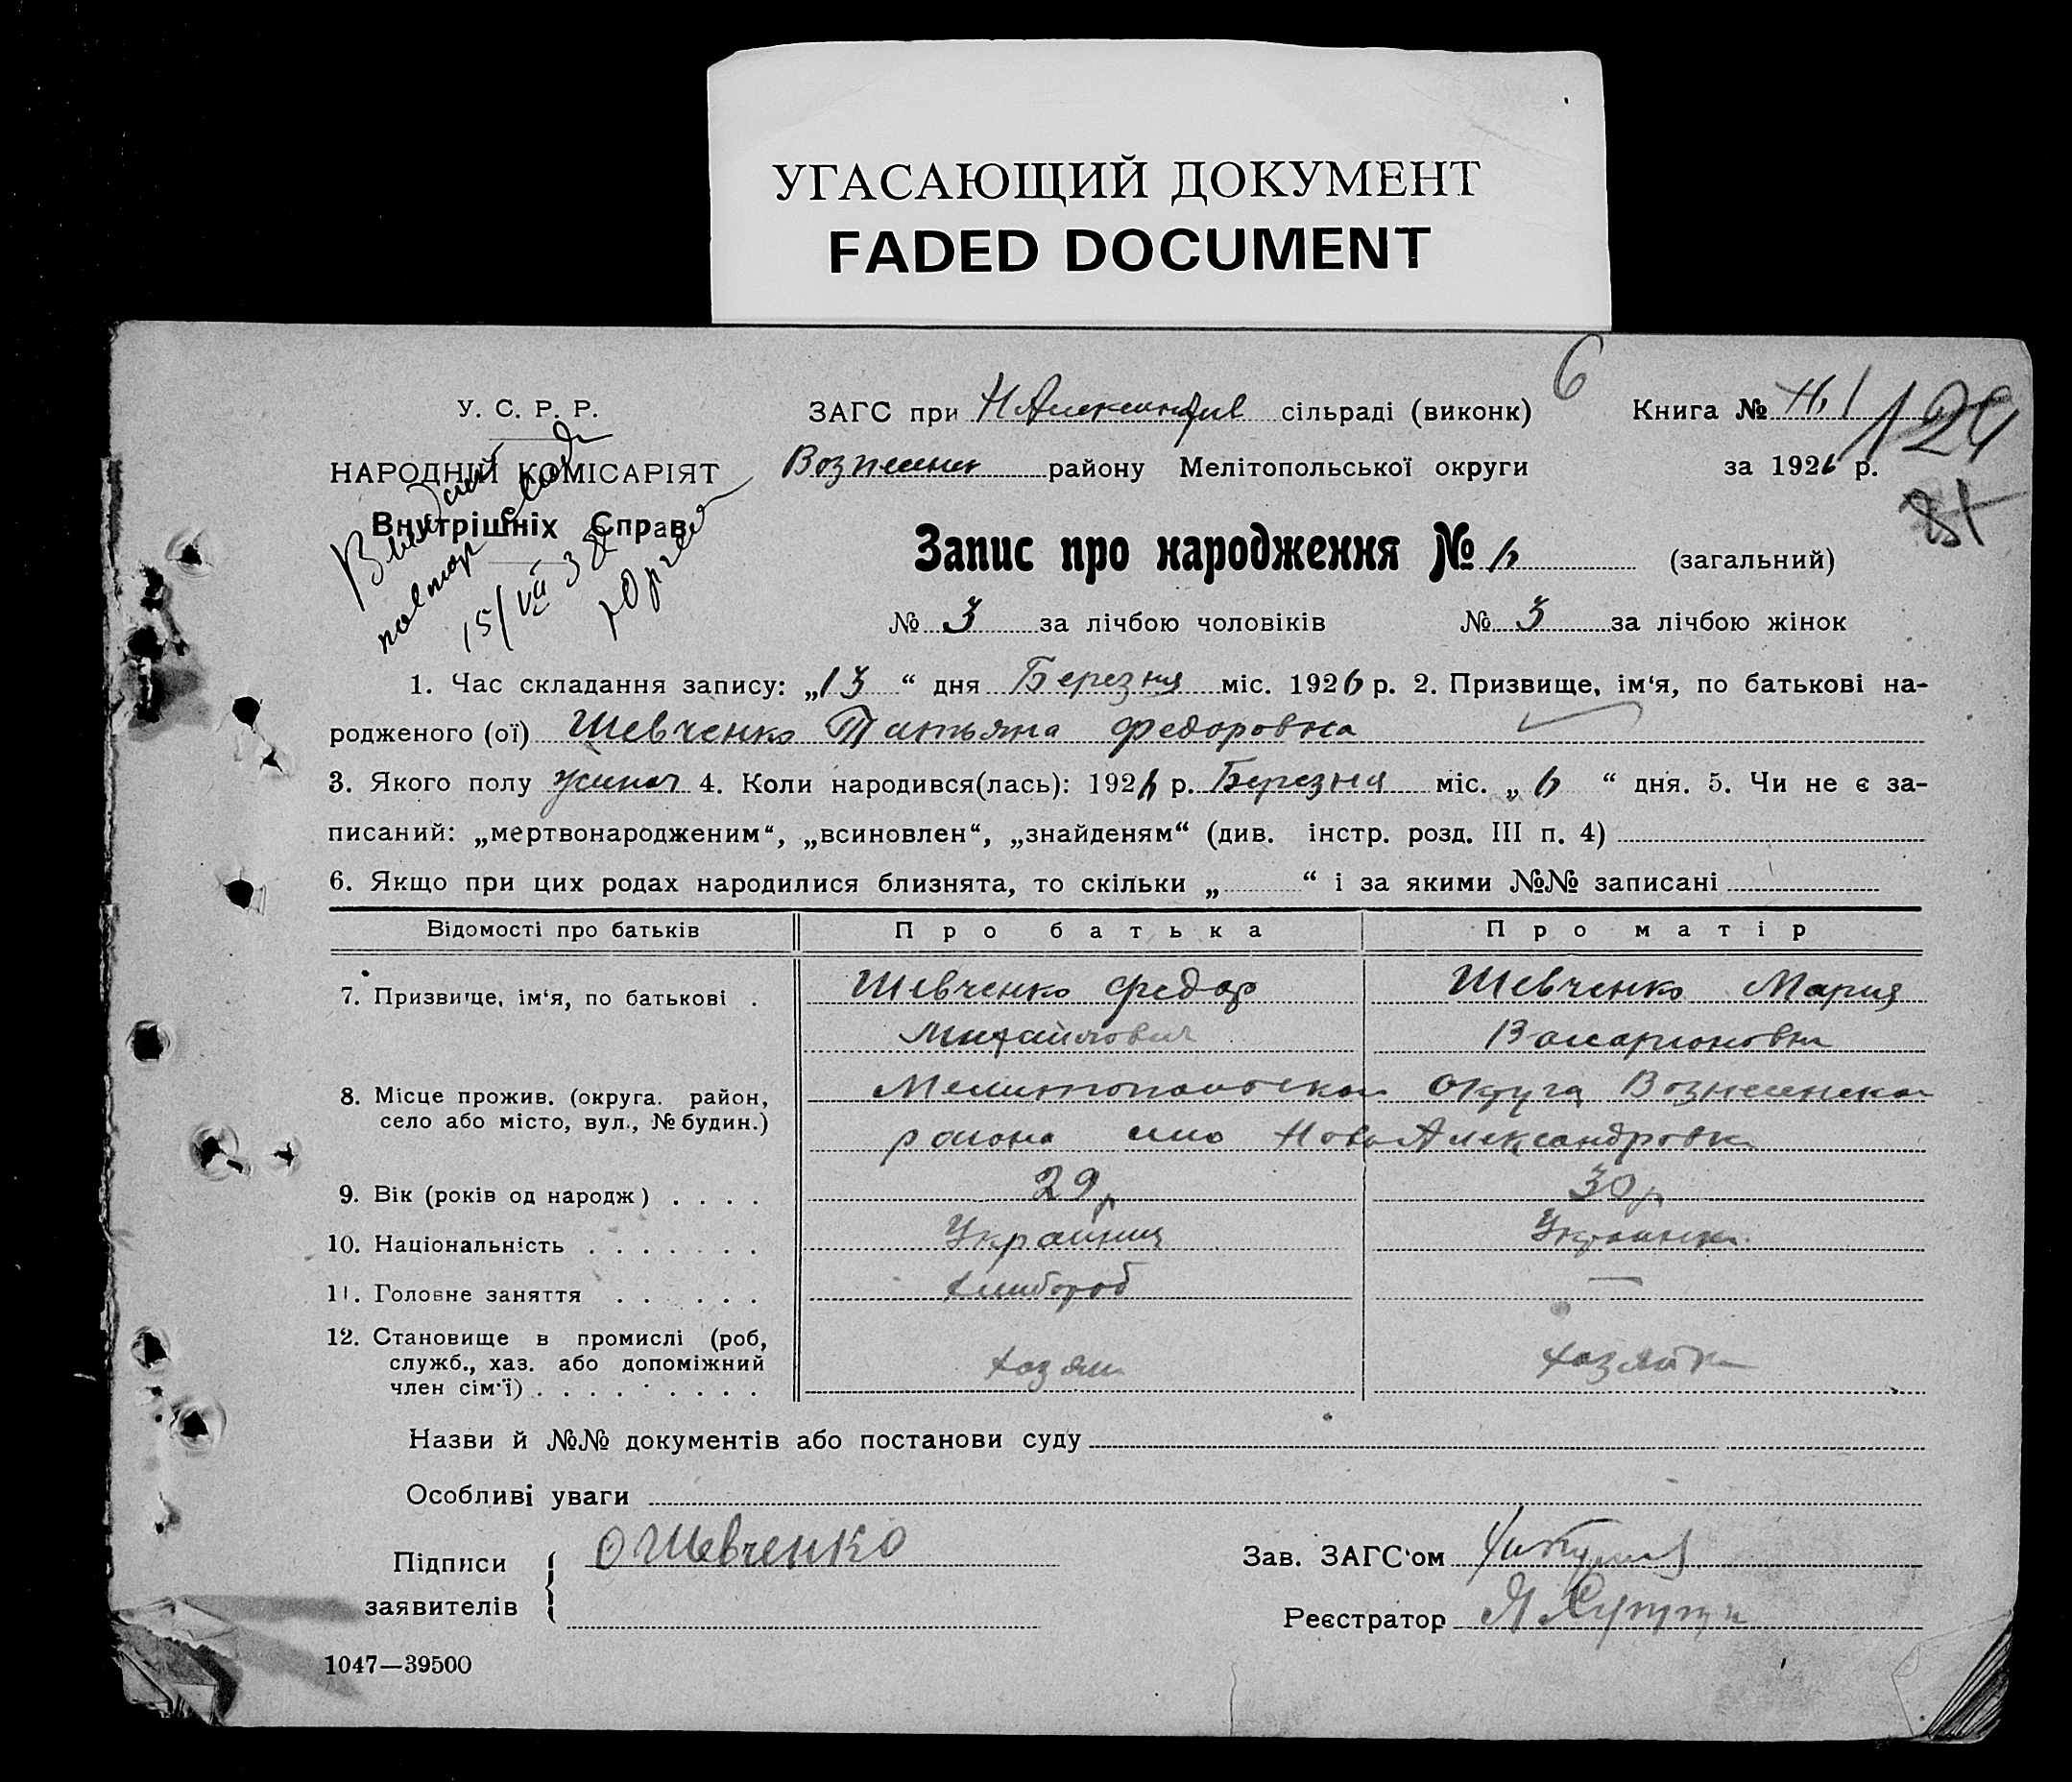 УГАСАЮЩИЙ ДОКУМЕНТ
FADED DOCUMENT
6
У. С. Р. Р.
НАРОДНІЙ КОМІСАРІЯТ
Внутрішніх Справ
15/VII 38
ЗАГС при Н Александрів сільраді (виконк)
Книга № 124
81
района Мелітопольської округи за 1926 р.
Запис про народження № 6 (загальний)
№ 3 за лічбою чоловіків № 3 за лічбою жінок
1. Час складання запису: „13“ дня Березня міс. 1926 р. 2. Призвище, ім‘я, по батькові на-
родженого (ої) Шевченко Татьяна Федоровна
3. Якого полу 4. Коли народився(лась): 1926 р. Березня міс. „6“ дня. 5. Чи не є за-
писаний: „мертвонародженим“, „всиновлен“, „знайденям“ (див. інстр. розд. III п. 4)
6. Якщо при цих родах народилися близнята, то скільки „ “ і за якими №№ записані
Відомості про батьків Про батька Про матір
7. Призвище, ім‘я, по батькові . Шевченко Федор Шевченко Мария
Михайлович
8. Місце прожив. (округа. район, Мелитопольской округа Вознесенской
село або місто, вул., № будин.) района село Ново Александровка
9. Вік (років од народж) . . . . 29 р 30 р
10. Національність . . . . . . . Украинец Украинка
11. Головне заняття . . . . . . хлибороб —
12. Становище в промислі (роб,
служб., хаз. або допоміжний хозяин хозяйка
член сім‘ї) . . . . . . . . .
Назви й №№ документів або постанови суду
Особливі уваги
Підписи О Шевченко Зав. ЗАГС‘ом
заявителів Реєстратор
1047—39500